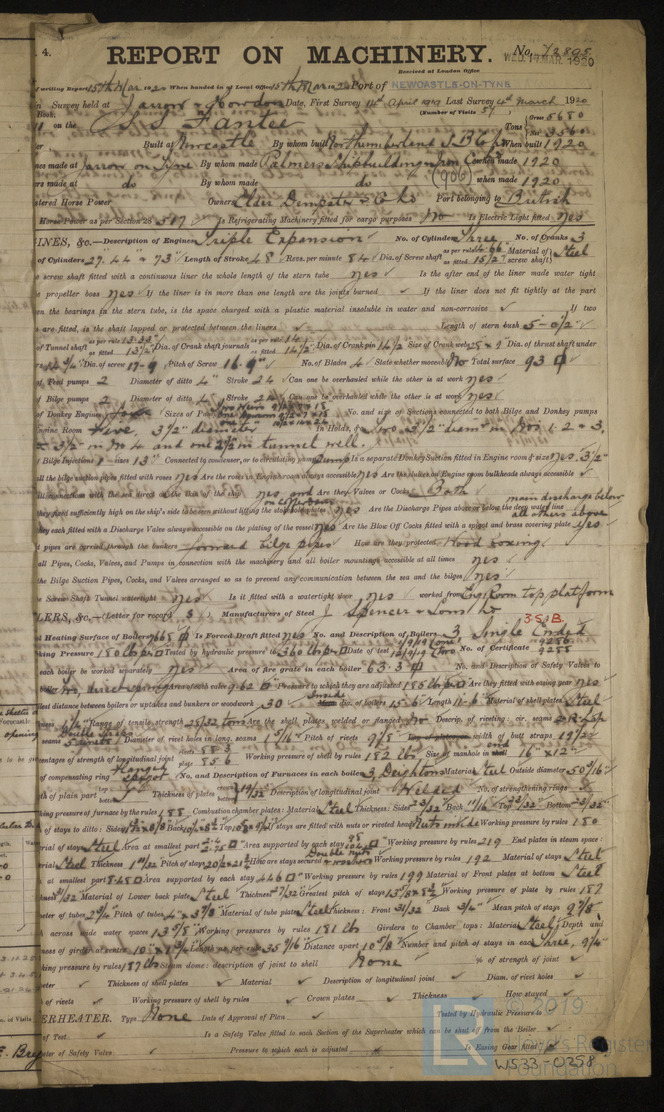 4.
REPORT ON MACHINERY. No. 72895
Received at London Office WED. 17 MAR. 1920
of writing Report 15th Mar 1920 When handed in at Local Office 15th Mar 1920 Port of NEWCASTLE-ON-TYNE
in Survey held at Jarrow & Howdon Date, First Survey 14th April 1919 Last Survey 4th March 1920
Book. (Number of Visits 51)
on the S.S. Fantee Tons Gross 5680 Net 3560
Built at Newcastle By whom built Northumberland S.B. Co When built 1920
nes made at Jarrow on Tyne By whom made Palmers Shipbuilding & Iron Co (906) when made 1920
rs made at do By whom made do when made 1920
stered Horse Power Owners Elder Dempster & Co Ld Port belonging to British
Horse Power as per Section 28 517 Is Refrigerating Machinery fitted for cargo purposes No Is Electric Light fitted Yes
INES, &c.—Description of Engines Triple Expansion No. of Cylinders Three No. of Cranks 3
of Cylinders 27. 44 & 73" Length of Stroke 48 Revs. per minute 84 Dia. of Screw shaft as per rule 14.66 as fitted 15 1/2" Material of screw shaft Steel
e screw shaft fitted with a continuous liner the whole length of the stern tube Yes Is the after end of the liner made water tight
e propeller boss Yes If the liner is in more than one length are the joints burned ✓ If the liner does not fit tightly at the part
en the bearings in the stern tube, is the space charged with a plastic material insoluble in water and non-corrosive ✓ If two
are fitted, is the shaft lapped or protected between the liners ✓ Length of stern bush 5-0 1/2"
of Tunnel shaft as fitted 13 1/2" Dia. of Crank shaft journals as per rule 14" as fitted 14 1/2" Dia. of Crank pin 14 1/2" Size of Crank webs 28 x 9 Dia. of thrust shaft under
rs 14 3/4 Dia. of screw 17-9 Pitch of Screw 16-9" No. of Blades 4 State whether moveable No Total surface 93 □
of Feed pumps 2 Diameter of ditto 4" Stroke 24 Can one be overhauled while the other is at work Yes
of Bilge pumps 2 Diameter of ditto 4" Stroke 24 Can one be overhauled while the other is at work Yes
of Donkey Engines Four Sizes of Pumps No. and size of Suctions connected to both Bilge and Donkey pumps
ngine Room Five 3 1/2" diameter In Holds, &c. Two 3 1/2" diam in Nos 1. 2 & 3,
3 1/2" in No 4 and one 2 1/2" in tunnel well.
f Bilge Injections 1 sizes 13" Connected to condenser, or to circulating pump Pump Is a separate Donkey Suction fitted in Engine room & size Yes. 3 1/2"
all the bilge suction pipes fitted with roses Yes Are the roses in Engine room always accessible Yes Are the sluices on Engine room bulkheads always accessible ✓
ll connections with the sea direct on the skin of the ship Yes and on after box Are they Valves or Cocks Both
hey fixed sufficiently high on the ship's side to be seen without lifting the stokehold plates Yes Are the Discharge Pipes above or below the deep water line main discharge below all others above
hey each fitted with a Discharge Valve always accessible on the plating of the vessel Yes Are the Blow Off Cocks fitted with a spigot and brass covering plate Yes
t pipes are carried through the bunkers forward bilge pipes How are they protected Wood boxing.
all Pipes, Cocks, Valves, and Pumps in connection with the machinery and all boiler mountings accessible at all times Yes
the Bilge Suction Pipes, Cocks, and Valves arranged so as to prevent any communication between the sea and the bilges Yes
e Screw Shaft Tunnel watertight Yes Is it fitted with a watertight door Yes worked from Eng. Room top platform
LERS, &c.—(Letter for record S) Manufacturers of Steel J Spencer & Sons Ld
3 S.B.
l Heating Surface of Boilers Is Forced Draft fitted Yes No. and Description of Boilers 3 Single Ended
king Pressure 180 lbs Tested by hydraulic pressure to 360 lbs Date of test No. of Certificate 9256 9258
each boiler be worked separately Yes Area of fire grate in each boiler 63.3 □ No. and Description of Safety Valves to
boiler Two, direct spring Area of each valve 9.62 □ Pressure to which they are adjusted 185 lbs Are they fitted with easing gear Yes
llest distance between boilers or uptakes and bunkers or woodwork 30" Inside dia. of boilers 15-6 Length 11-6 Material of shell plates Steel
ness 1 5/16" Range of tensile strength 28/32 tons Are the shell plates welded or flanged No Descrip. of riveting: cir. seams D.R. Lap
seams Diameter of rivet holes in long. seams 1 5/16" Pitch of rivets 9 1/8" width of butt straps 19 1/2"
centages of strength of longitudinal joint rivets 88.3 plate 85.6 Working pressure of shell by rules 182 lbs Size of manhole in shell end 16" x 12"
of compensating ring Flanged No. and Description of Furnaces in each boiler 3 Deighton Material Steel Outside diameter 50 9/16"
th of plain part Thickness of plates 19/32 Description of longitudinal joint Welded No. of strengthening rings
king pressure of furnace by the rules 188 Combustion chamber plates: Material Steel Thickness: Sides 23/32 Back 11/16 Top 23/32 Bottom 23/32
h of stays to ditto: Sides Back Top If stays are fitted with nuts or riveted heads Nuts inside Working pressure by rules 180
erial of stays Steel Area at smallest part Area supported by each stay Working pressure by rules 219 End plates in steam space:
terial Steel Thickness 1 9/32 Pitch of stays 20 1/2 x 21 1/2 How are stays secured Double nuts & washers Working pressure by rules 192 Material of stays Steel
at smallest part 8.48 □ Area supported by each stay 446 □" Working pressure by rules 199 Material of Front plates at bottom Steel
kness 31/32 Material of Lower back plate Steel Thickness 27/32 Greatest pitch of stays 13 5/8 x 8 1/2 Working pressure of plate by rules 187
eter of tubes 2 3/4 Pitch of tubes 4" x 3 7/8 Material of tube plates Steel Thickness: Front 31/32 Back 3/4" Mean pitch of stays 9 7/8"
h across wide water spaces 13 5/8" Working pressures by rules 181 lb Girders to Chamber tops: Material Steel Depth and
ness of girder at centre Length as per rule 35 9/16 Distance apart 10 5/8 Number and pitch of stays in each Three, 9 1/4"
king pressure by rules 187 lbs Steam dome: description of joint to shell None % of strength of joint ✓
eter ✓ Thickness of shell plates ✓ Material ✓ Description of longitudinal joint ✓ Diam. of rivet holes ✓
h of rivets ✓ Working pressure of shell by rules ✓ Crown plates ✓ Thickness ✓ How stayed ✓
ERHEATER. Type None Date of Approval of Plan ✓ Tested by Hydraulic Pressure to
of Test. ✓ Is a Safety Valve fitted to each Section of the Superheater which can be shut off from the Boiler ✓
eter of Safety Valve ✓ Pressure to which each is adjusted ✓ Is Easing Gear fitted
© 2019
Lloyd's Register
Foundation
W533-0258